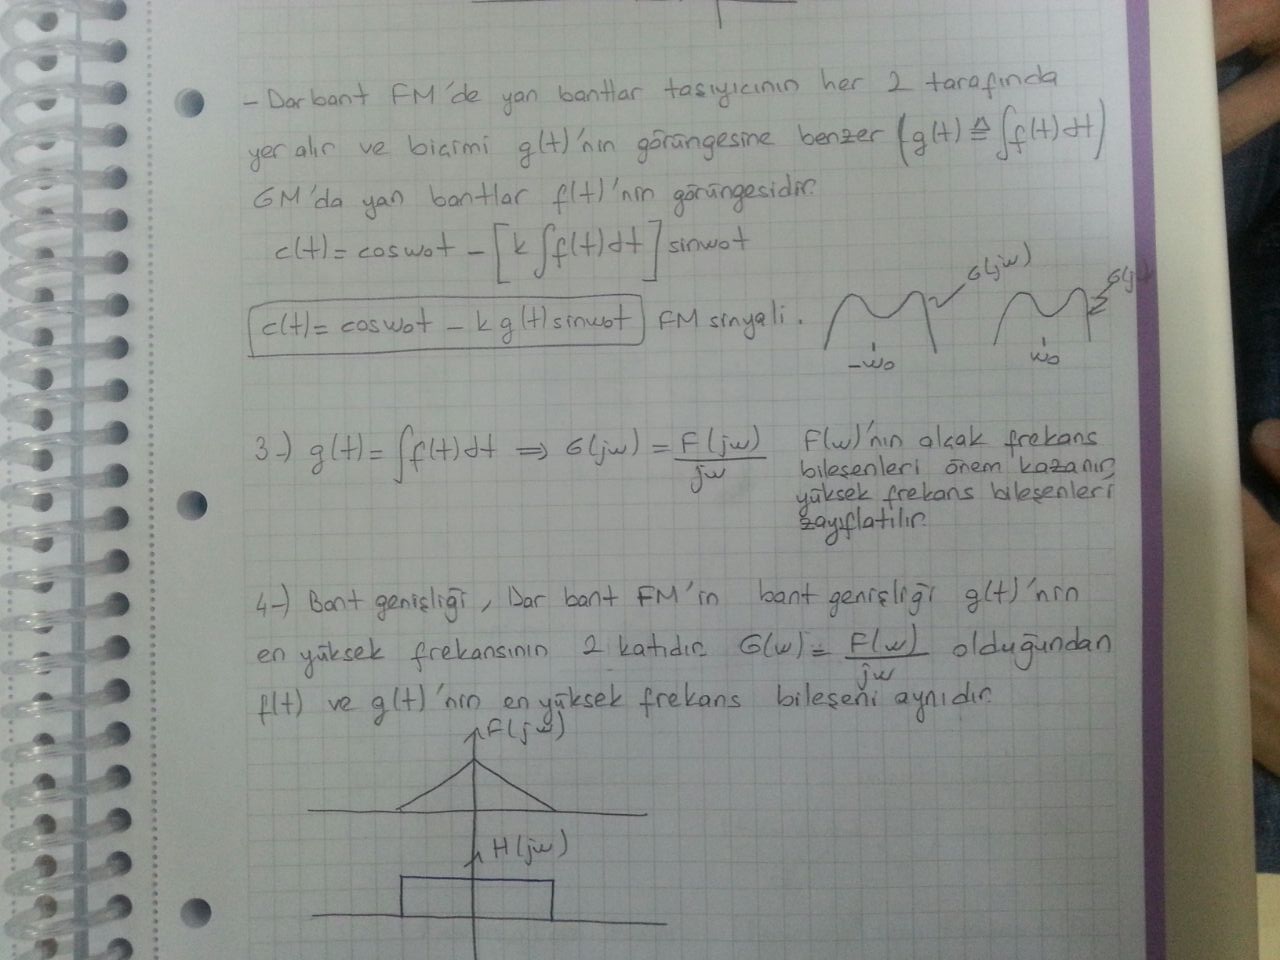 - Dar bant FM'de yan bantlar taşıyıcının her 2 tarafında
yer alır ve biçimi g(t)'nin görüngesine benzer (g(t) ≜ ∫f(t)dt)
GM'da yan bantlar f(t)'nin görüngesidir.
c(t) = cosw₀t - [k ∫f(t)dt] sinw₀t
c(t) = cosw₀t - k g(t) sinw₀t FM sinyali.
G(jw)
-w₀
w₀
3-) g(t) = ∫f(t)dt ⇒ G(jw) = F(jw)/jw
F(w)'nin alçak frekans
bileşenleri önem kazanır,
yüksek frekans bileşenleri
zayıflatılır.
4-) Bant genişliği, Dar bant FM'in bant genişliği g(t)'nin
en yüksek frekansının 2 katıdır. G(w) = F(w)/jw olduğundan
f(t) ve g(t)'nin en yüksek frekans bileşeni aynıdır.
F(jw)
H(jw)